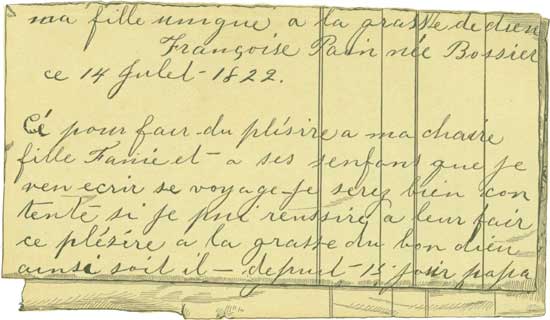 ma fille unique a la grasse de dieu
Françoise Pain née Bossier
ce 14 Julet - 1822.
Cé pour fair du plésire a ma chaire
fille Fanie et - a ses senfans que je
ven ecrir se voyage - Je serez bien con
tente si je pui reussire a leur fair
ce plézire a la grasse du bon dieu
ainsi soit il - depuit - 15 jour papa